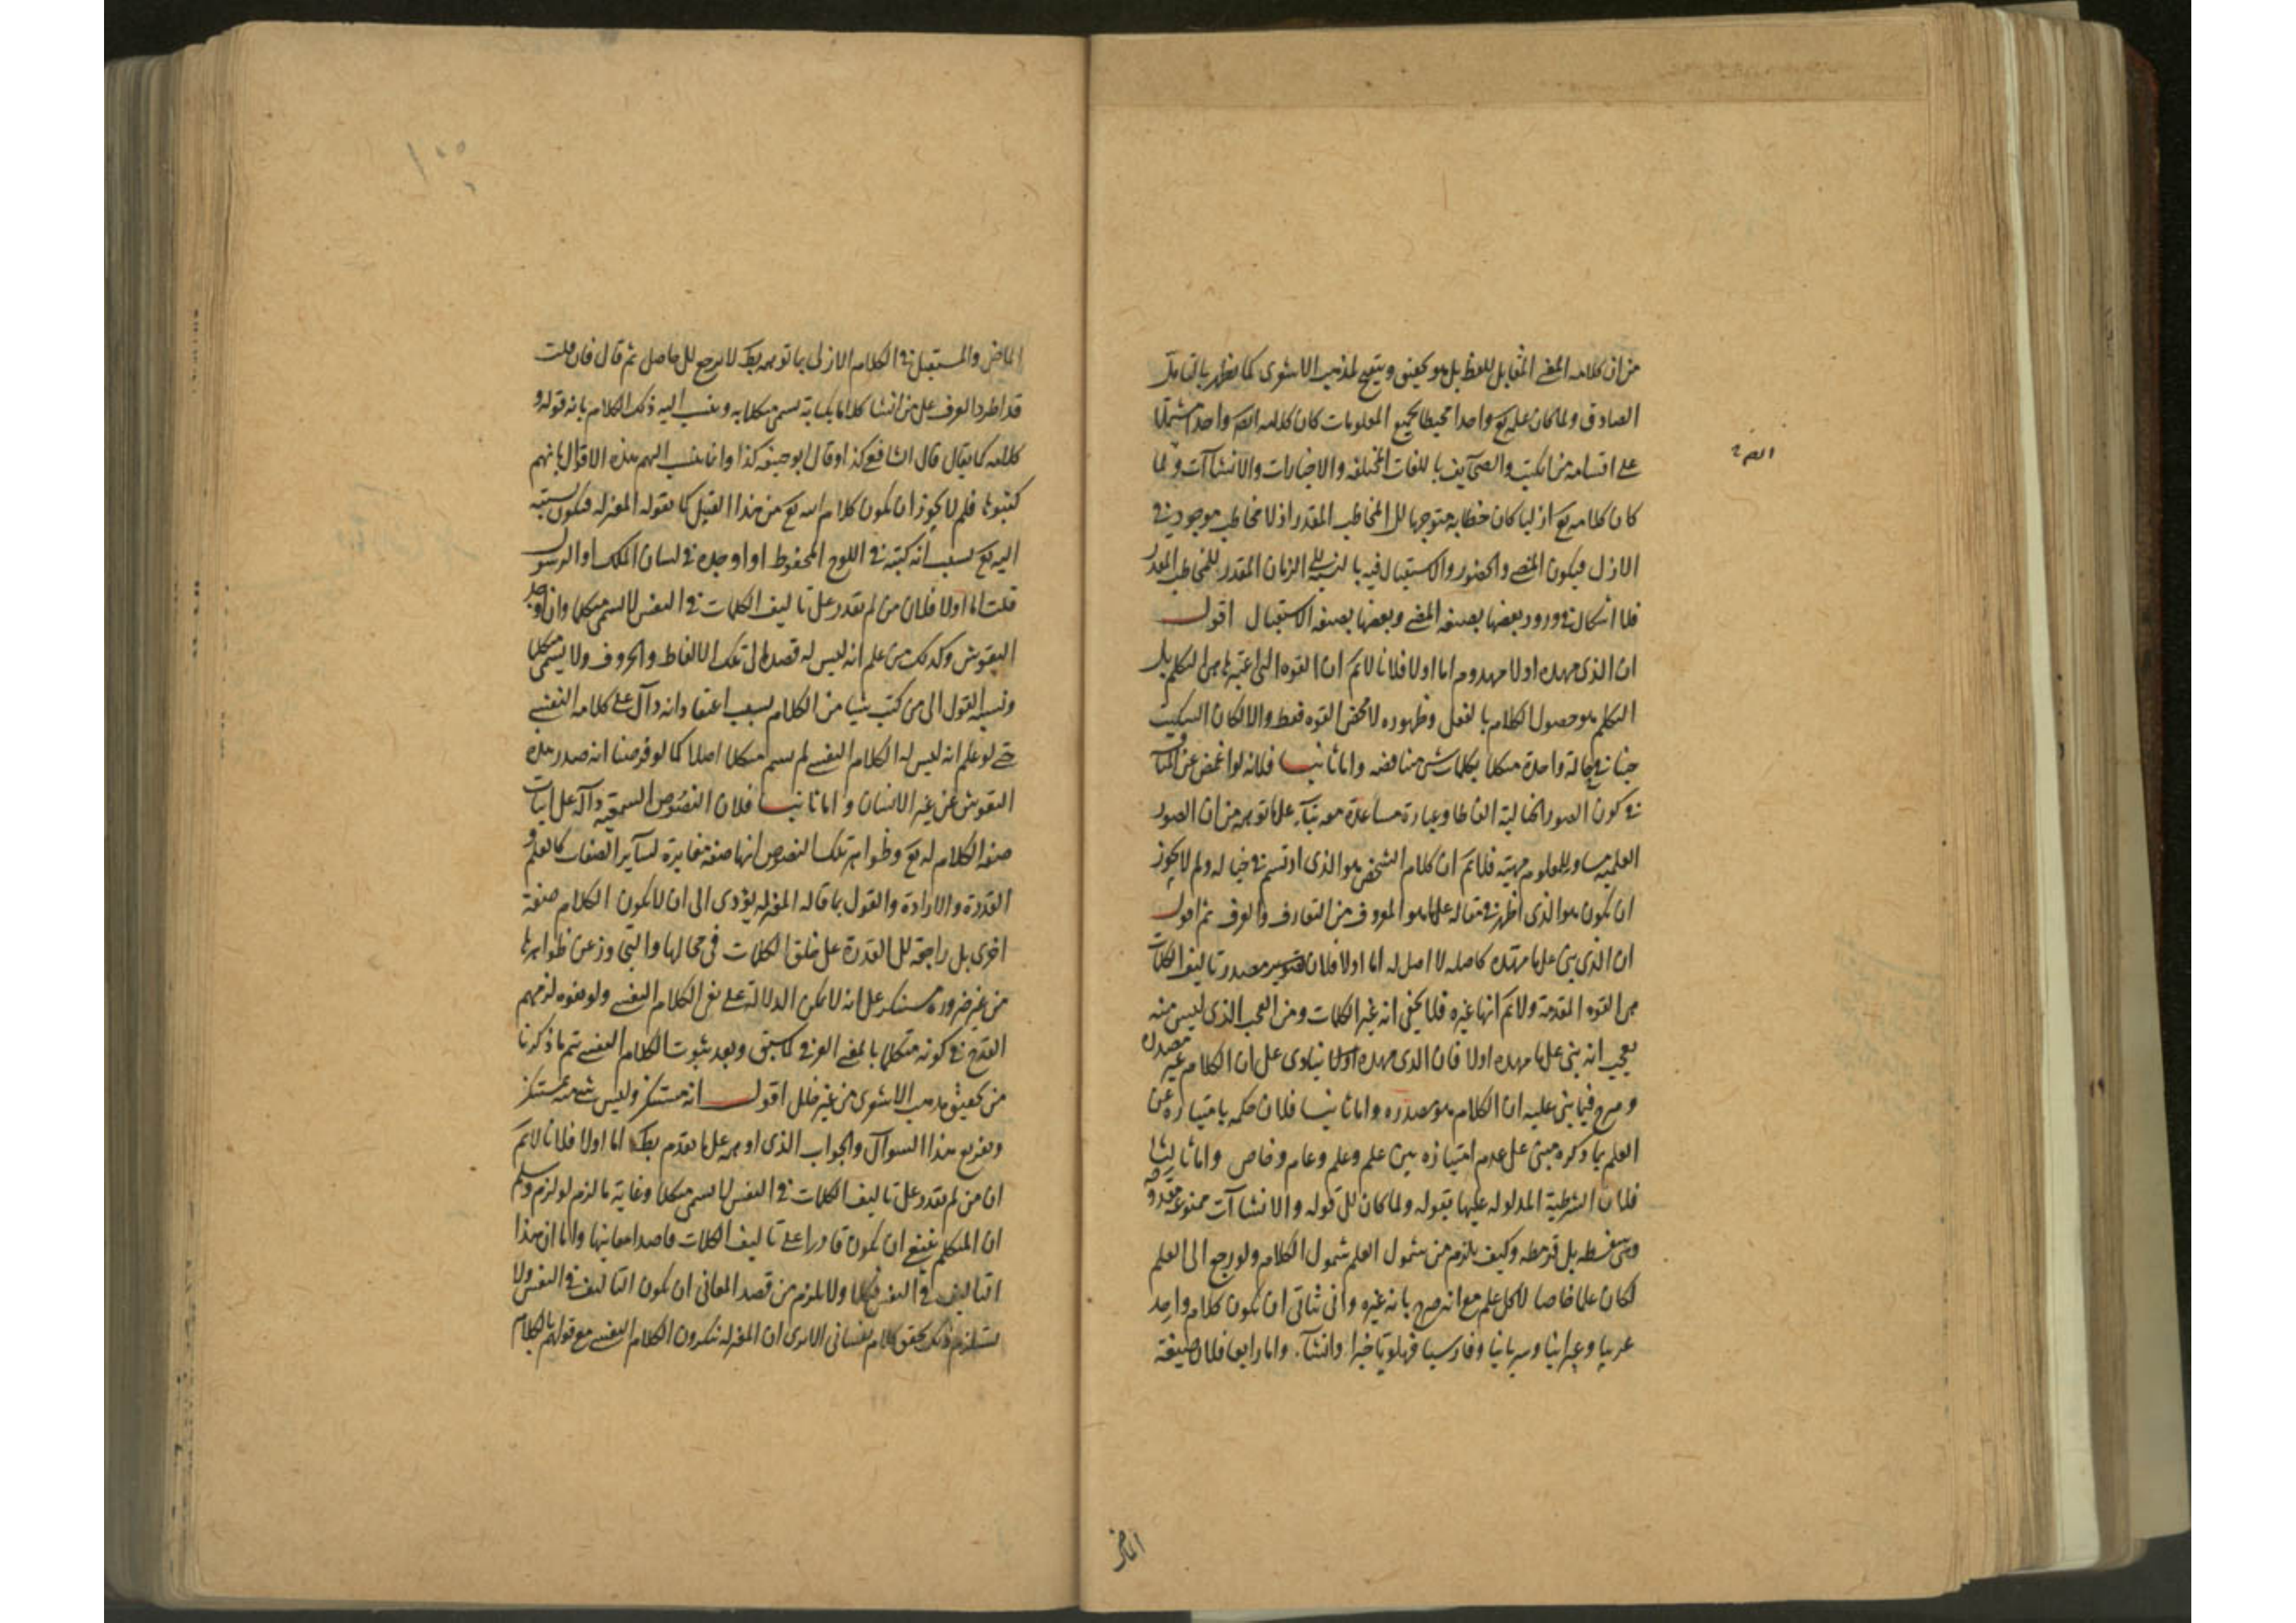 من ان كلامه المعنى المقابل للفظ بل هو تحقيق وتنقيح لمذهب الاشعرى كما يظهر بالتامل
الصادق ولما كان علمه تع واحدا محيطا بجميع المعلومات كان كلامه ايضا واحدا مشتملا
على اقسامه من الكتب والصحايف باللغات المختلفه والاخبارات والانشاآت ولما
كان كلامه تع ازليا كان خطابه متوجها الى المخاطب المقدر اذ لا مخاطب موجود فى
الازل فيكون المضى والحضور والاستقبال فيه بالنسبة الى الزمان المقدر للمخاطب المقدر
فلا اشكال فى ورود بعضها بصيغه المضى وبعضها بصيغه الاستقبال اقول
ان الذى مهده اولا مهدوم اما اولا فلانا لانم ان القوه التى اعتبرها هى التكلم بل
التكلم هو حصول الكلام بالفعل وظهوره لا محض القوه فقط والا لكان السكيت
حينا فى حالة واحدة متكلما بكلمات شتى متناقضه واما ثانيا فلانه لو اغمض عن المناقشة
فى كون الصور الخيالية الفاظا وعبارة مساعدة معه بناء على ما توهمه من ان الصور
العلميه مساو للمعلوم مهية فلانم ان كلام الشخص هو الذى ارتسم فى خياله ولم لا يجوز
ان يكون هو الذى اظهر فى مقاله على ما هو المعروف من التعارف والعرف ثم اقول
ان الذى بنى على ما مهده كاصله لا اصل له اما اولا فلان مصدر تاليف الكلمات
هى القوه المقدمة ولانم انها غيره فلا يخفى انه غير الكلمات ومن العجب الذى ليس منه
بعجب انه بنى على ما مهده اولا فان الذى مهده اولا ينادى على ان الكلام غير مصدره
وصرح فيما بنى عليه ان الكلام هو مصدره واما ثانيا فلان حكمه بامتيازه عن
العلم بما ذكره مبنى على عدم امتيازه بين علم وعلم وعام وخاص واما ثالثا
فلان الشرطية المدلوله عليها بقوله ولما كان الى قوله والانشاآت ممنوعة
وهى سفسطه بل قرمطه وكيف يلزم من شمول العلم شمول الكلام ولو رجع الى العلم
لكان علما خاصا لا كل علم مع انه صرح بانه غيره وانى يتاتى ان يكون كلام واحد
عربيا وعبرانيا وسريانيا وفارسيا فهلويا خبرا وانشآء واما رابعا فلان صيغة
ايضا
الماضى
الماضى والمستقبل فى الكلام الازلى بما توهمه بطك لا يرجع الى حاصل ثم قال فان قلت
قد اطرد العرف على من انشا كلاما بكتابة يسمى متكلما به وينسب اليه ذلك الكلام بانه قوله و
كلامه كما يقال قال الشافعى كذا وقال ابو حنيفه كذا وانما ينسب اليهم هذه الاقوال بانهم
كتبوها فلم لا يجوز ان يكون كلام الله تع من هذا القبيل كما يقوله المعتزله فيكون نسبته
اليه تع بسبب انه كتبه فى اللوح المحفوظ او اوجده فى لسان الملك او الرسول
قلت اما اولا فلان من لم يقدر على تاليف الكلمات فى النفس لا يسمى متكلما وان اوجد
النقوش وكذلك من علم انه ليس له قصد الى تلك الالفاظ والحروف ولا يسمى متكلما
ونسبة القول الى من كتب شيئا من الكلام بسبب اعتقاد انه دال على كلامه النفسى
حتى لو علم انه ليس له الكلام النفسى لم يسم متكلما اصلا كما لو فرضنا انه صدر هذه
النقوش عن غير الانسان واما ثانيا فلان النصوص السمعية دآلة على اثبات
صفة الكلام له تع وظواهر تلك النصوص انها صفة مغايرة لسآير الصفات كالعلم و
القدرة والارادة والقول بما قاله المعتزله يؤدى الى ان لا يكون الكلام صفة
اخرى بل راجعة الى القدرة على خلق الكلمات فى محالها والتجاوز عن ظواهرها
من غير ضروره مستنكر على انه لا يمكن الدلالة على نفى الكلام النفسى ولو نفوه لزمهم
القدح فى كونه متكلما بالمعنى العرفى كما سبق وبعد ثبوت الكلام النفسى يتم ما ذكرنا
من تحقيق مذهب الاشعرى من غير خلل اقول انه مستنكر وليس شى منه بمستنكر
وتفريع هذا السوال والجواب الذى اوهمه على ما تقدم بطك اما اولا فلانا لانم
ان من لم يقدر على تاليف الكلمات فى النفس لا يسمى متكلما وغاية ما لزم لو لزم وسلم
ان المتكلم ينبغى ان يكون قادرا على تاليف الكلمات قاصدا معانيها واما ان هذا
التاليف فى النفس فكلا ولا يلزم من قصد المعانى ان يكون التاليف فى النفس ولا
يستلزم ذلك تحقق كلام نفسانى الا يرى ان المعتزله ينكرون الكلام النفسى مع قولهم بالكلام